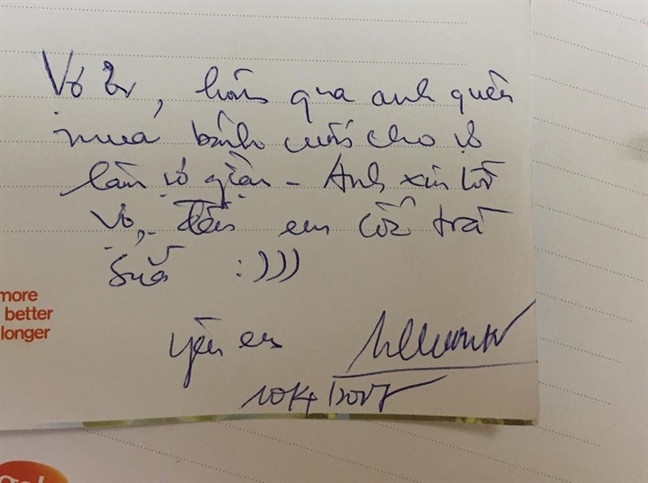 Vợ ơi, hôm qua anh quên
mua bánh cuốn cho vợ
làm vợ giận - Anh xin lỗi
vợ, đền em cốc trà
sữa :)))
yêu em
more
better
longer